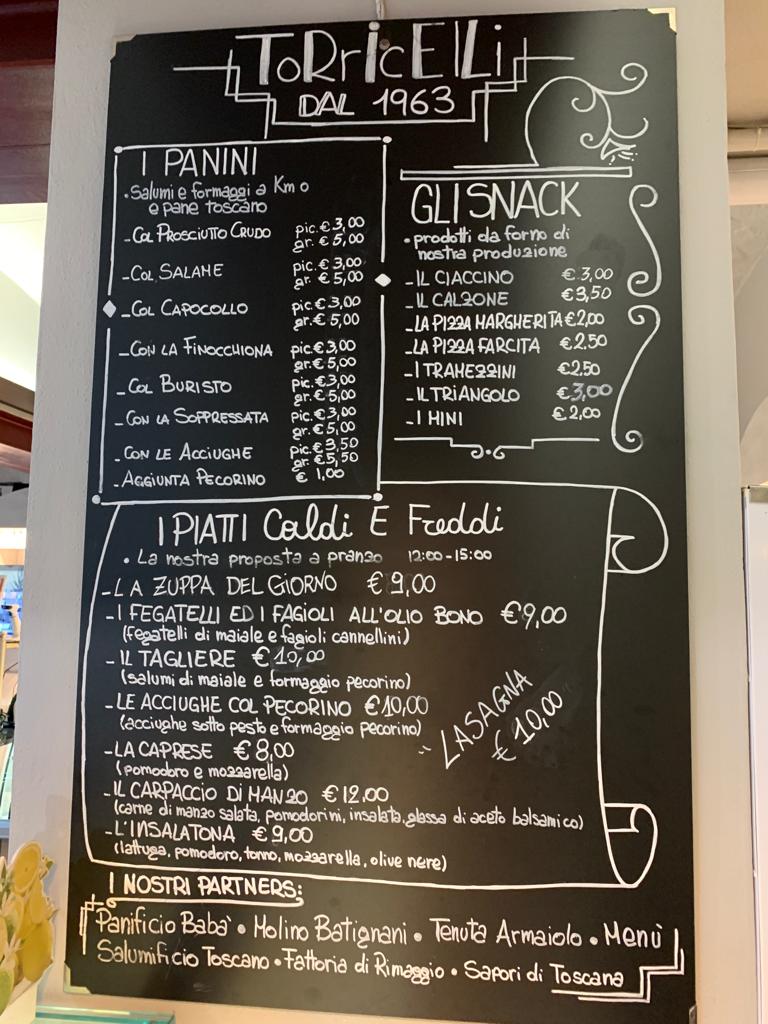 ToRricElLi
DAL 1963
I PANINI
• Salumi e formaggi a Km 0
e pane toscano
- COL PROSCIUTTO CRUDO pic. € 3,00
gr. € 5,00
- COL SALAME pic. € 3,00
gr. € 5,00
- COL CAPOCOLLO pic. € 3,00
gr. € 5,00
- CON LA FINOCCHIONA pic. € 3,00
gr. € 5,00
- COL BURISTO pic. € 3,00
gr. € 5,00
- CON LA SOPPRESSATA pic. € 3,00
gr. € 5,00
- CON LE ACCIUGHE pic. € 3,50
gr. € 5,50
- AGGIUNTA PECORINO € 1,00
GLI SNACK
• prodotti da forno di
nostra produzione
- IL CIACCINO € 3,00
- IL CALZONE € 3,50
- LA PIZZA MARGHERITA € 2,00
- LA PIZZA FARCITA € 2.50
- I TRAMEZZINI € 2.50
- IL TRIANGOLO € 3,00
- I MINI € 2,00
I PIATTI Caldi E Freddi
• La nostra proposta a pranzo 12:00 - 15:00
- LA ZUPPA DEL GIORNO € 9,00
- I FEGATELLI ED I FAGIOLI ALL'OLIO BONO € 9,00
(fegatelli di maiale e fagioli cannellini)
- IL TAGLIERE € 10,00
(salumi di maiale e formaggio pecorino)
- LE ACCIUGHE COL PECORINO € 10,00
(acciughe sotto pesto e formaggio pecorino)
- LA CAPRESE € 8,00
(pomodoro e mozzarella)
- IL CARPACCIO DI MANZO € 12.00
(carne di manzo salata, pomodorini, insalata, glassa di aceto balsamico)
- L'INSALATONA € 9,00
(lattuga, pomodoro, tonno, mozzarella, olive nere)
- LASAGNA
€ 10,00
I NOSTRI PARTNERS:
Panificio Babà • Molino Batignani • Tenuta Armaiolo • Menù
Salumificio Toscano • Fattoria di Rimaggio • Sapori di Toscana